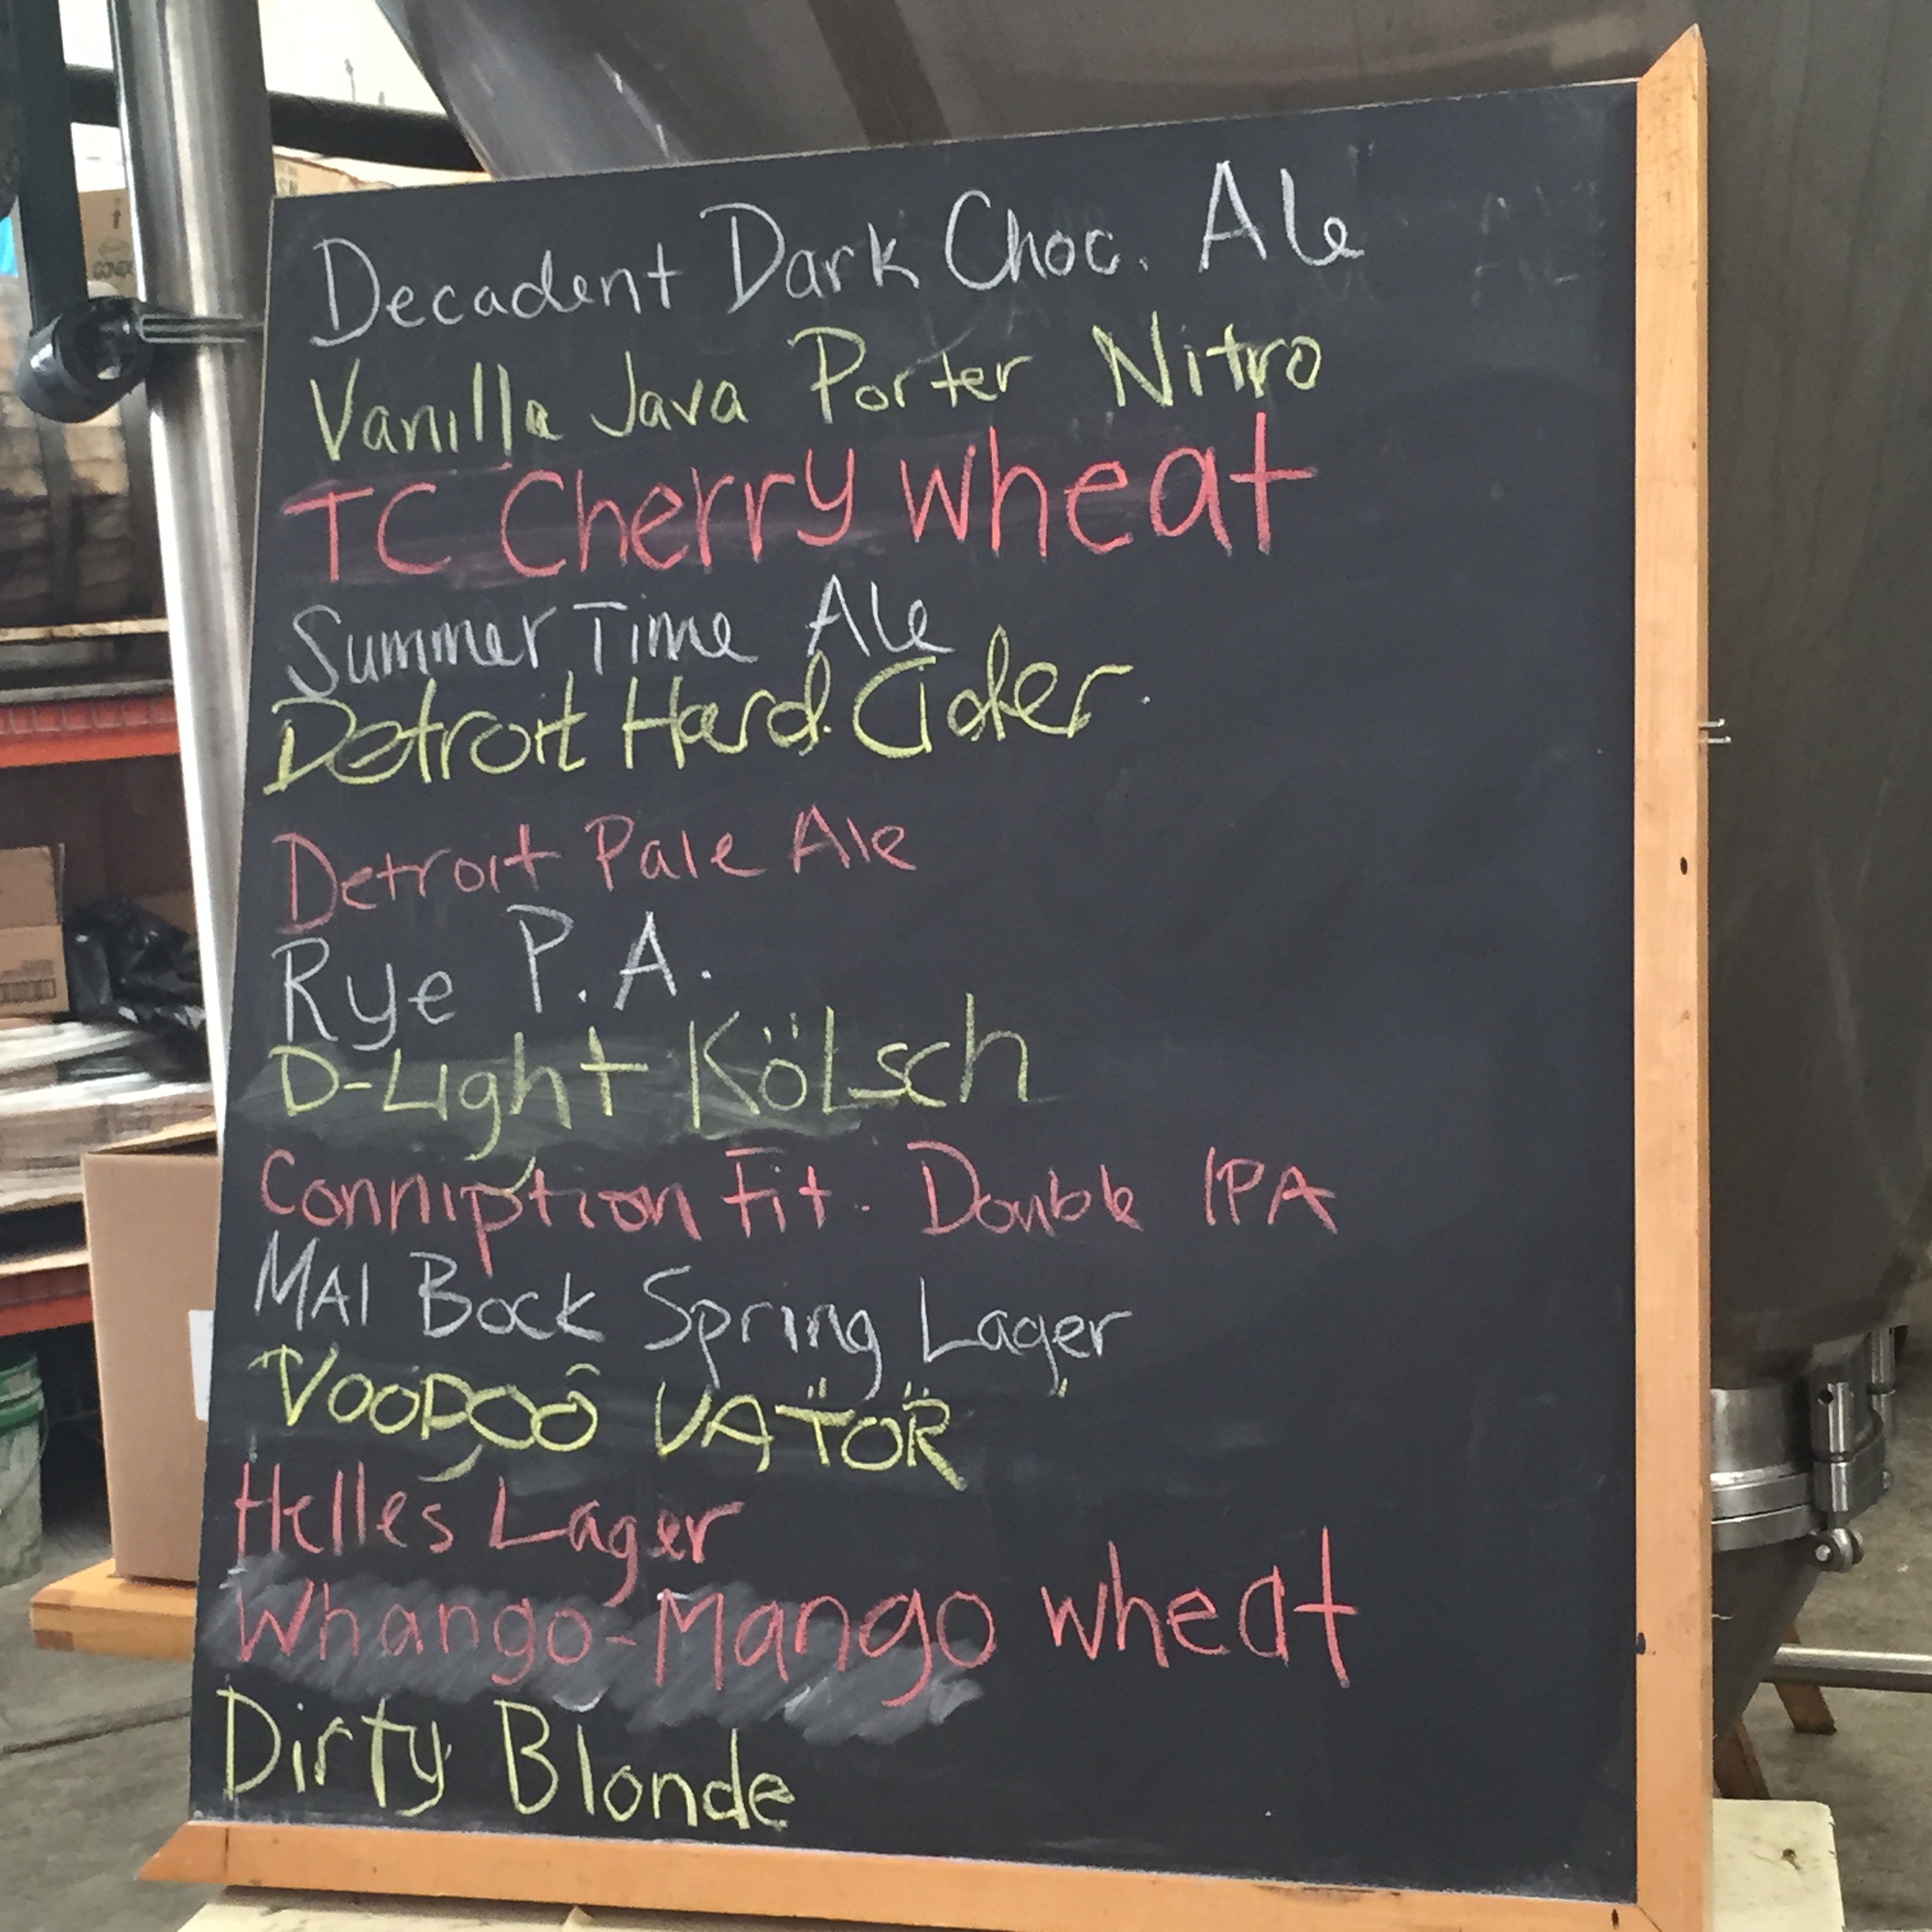 Decadent Dark Choc. Ale
Vanilla Java Porter Nitro
TC Cherry wheat
Summer Time Ale
Detroit Hard Cider.
Detroit Pale Ale
Rye P.A.
D-Light KöLsch
Conniption Fit. Double IPA
MAI Bock Spring Lager
VOODOÔ VÄTÖR
Helles Lager
Whango-Mango wheat
Dirty Blonde